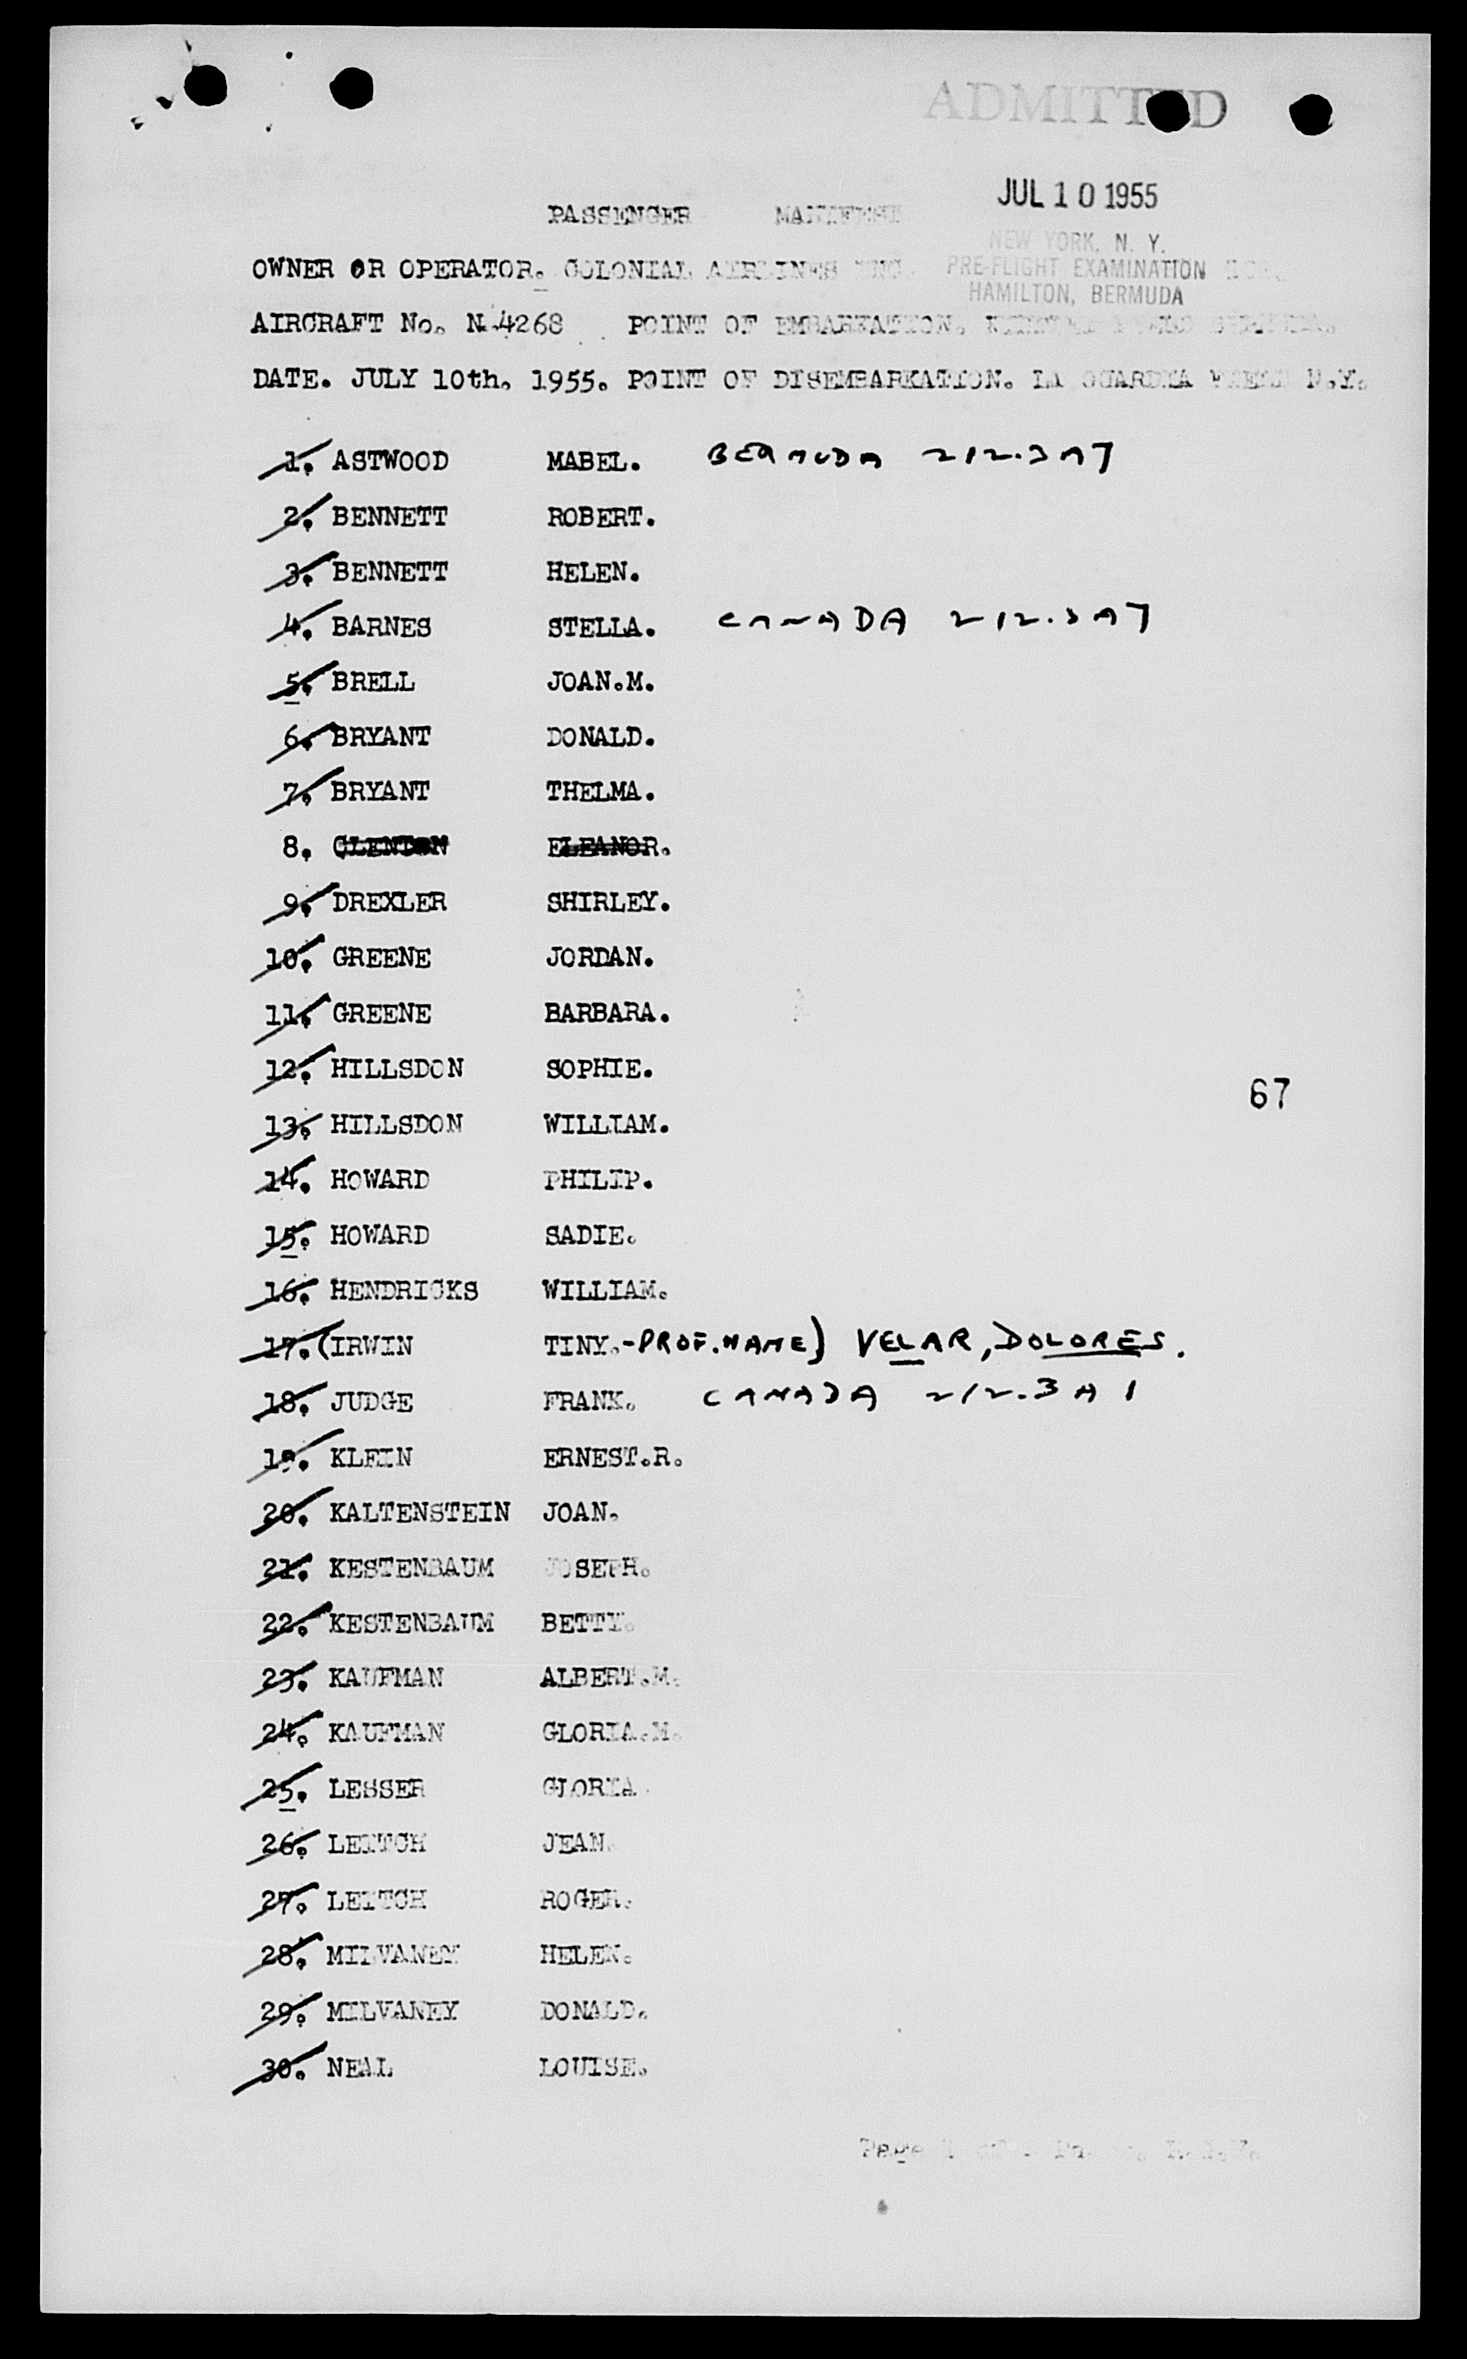 ADMITTED
JUL 10 1955
PASSENGER MANIFEST
NEW YORK, N. Y.
OWNER OR OPERATOR. COLONIAL AIRLINES INC. PRE-FLIGHT EXAMINATION
HAMILTON, BERMUDA
AIRCRAFT No. N.4268 POINT OF EMBARKATION.
DATE. JULY 10th, 1955. POINT OF DISEMBARKATION. LA GUARDIA FIELD N.Y.
1. ASTWOOD MABEL. BERMUDA 212.3A7
2. BENNETT ROBERT.
3. BENNETT HELEN.
4. BARNES STELLA. CANADA 212.3A7
5. BRELL JOAN.M.
6. BRYANT DONALD.
7. BRYANT THELMA.
8. CLENTON ELEANOR.
9. DREXLER SHIRLEY.
10. GREENE JORDAN.
11. GREENE BARBARA.
12. HILLSDON SOPHIE.
67
13. HILLSDON WILLIAM.
14. HOWARD PHILIP.
15. HOWARD SADIE.
16. HENDRICKS WILLIAM.
17. (IRWIN TINY.-PROF.NAME) VELAR, DOLORES.
18. JUDGE FRANK. CANADA 212.3A1
19. KLEIN ERNEST.R.
20. KALTENSTEIN JOAN.
21. KESTENBAUM JOSEPH.
22. KESTENBAUM BETTY.
23. KAUFMAN ALBERT.M.
24. KAUFMAN GLORIA.M.
25. LESSER GLORIA.
26. LEITCH JEAN.
27. LEITCH ROGER.
28. MILVANEY HELEN.
29. MILVANEY DONALD.
30. NEAL LOUISE.
Page